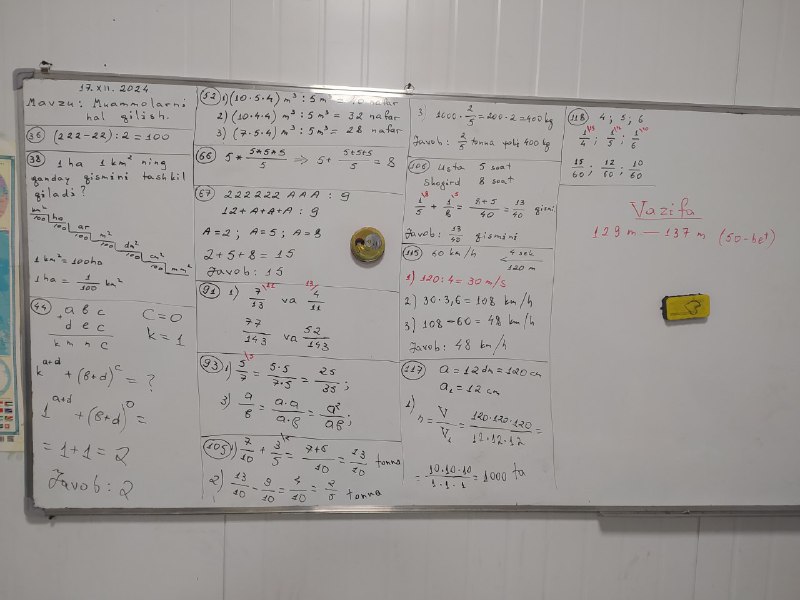 17.XII.2024
Mavzu: Muammolarni
hal qilish.
36 (222-22):2=100
38 1 ha 1 km² ning
qanday qismini tashkil
qiladi?
km²
100 ha
100 ar
100 m²
100 dm²
100 cm²
100 mm²
1 km² = 100 ha
1 ha = 1/100 km²
44 + a b c
d e c
k m n c
C=0
k=1
k^(a+d) + (b+d)^c = ?
1^(a+d) + (b+d)^0 =
= 1+1 = 2
Javob: 2
52 1) (10·5·4) m³ : 5 m³ = 40 nafar
2) (10·4·4) m³ : 5 m³ = 32 nafar
3) (7·5·4) m³ : 5 m³ = 28 nafar
66 5* (5*5*5)/5 ⇒ 5+ (5+5+5)/5 = 8
67 222222 AAA : 9
12+A+A+A : 9
A=2; A=5; A=8
2+5+8=15
Javob: 15
91 1) 7/13 \11 va 4/11 13/
77/143 va 52/143
93 1) 5/7 \5 = 5·5/7·5 = 25/35;
3) a/b = a·a/a·b = a²/ab;
105 1) 7/10 + 3/5 \2 = 7+6/10 = 13/10 tonna
2) 13/10 - 9/10 = 4/10 = 2/5 tonna
3) 1000 · 2/5 = 200·2 = 400 kg
Javob: 2/5 tonna yoki 400 kg
106 Usta 5 soat
Shogird 8 soat
1/5 \8 + 1/8 \5 = 8+5/40 = 13/40 qismi
Javob: 13/40 qismini
115 60 km/h 4 sek
120 m
1) 120:4 = 30 m/s
2) 30·3,6 = 108 km/h
3) 108-60 = 48 km/h
Javob: 48 km/h
117 a = 12 dm = 120 cm
a₁ = 12 cm
1) n = V/V₁ = 120·120·120/12·12·12 =
= 10·10·10/1·1·1 = 1000 ta
118 4; 5; 6
1/4 \15; 1/5 \12; 1/6 \10
15/60; 12/60; 10/60
Vazifa
129 m — 137 m (50-bet)